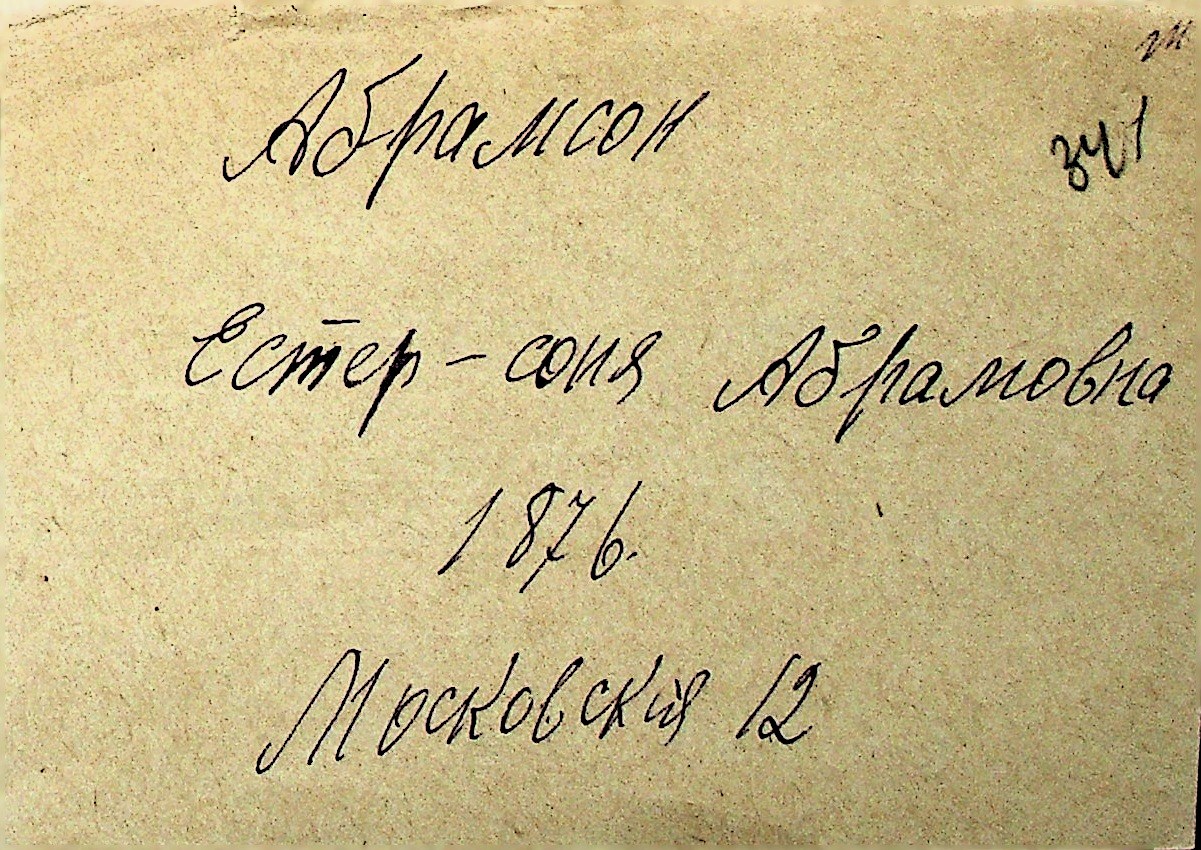 Абрамсон
341
Естер-соня Абрамовна
1876.
Московскія 12